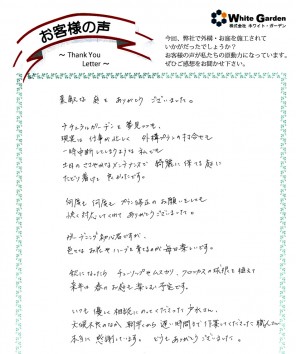 お客様の声
～ Thank You
Letter ～
White Garden
株式会社 ホワイト・ガーデン
今回、弊社で外構・お庭を施工されて
いかがだったでしょうか？
お客様の声が私たちの原動力になっています。
ぜひご感想をお聞かせ下さい。
素敵な庭をありがとうございました。
ナチュラルガーデンを夢見つつも、
現実は仕事が忙しく 外構プランの打合せも
一時中断してしまうような私でも
土日のささやかなメンテナンスで 綺麗に保てる庭に
たどり着けて良かったです。
何度も何度もプラン修正のお願いをしても
快く対応してくれてありがとうございました。
ガーデニング初心者ですが、
色々なお花やハーブを育てるのが毎日楽しいです。
秋になったら チューリップやムスカリ、クロッカスの球根を植えて
来年は春のお庭を楽しむ予定です。
いつも優しく相談にのってくださった
大塚不在のなか 朝早くから 遅い時間まで作業してくださった職人さん
本当に感謝しています。 どうもありがとうございました。